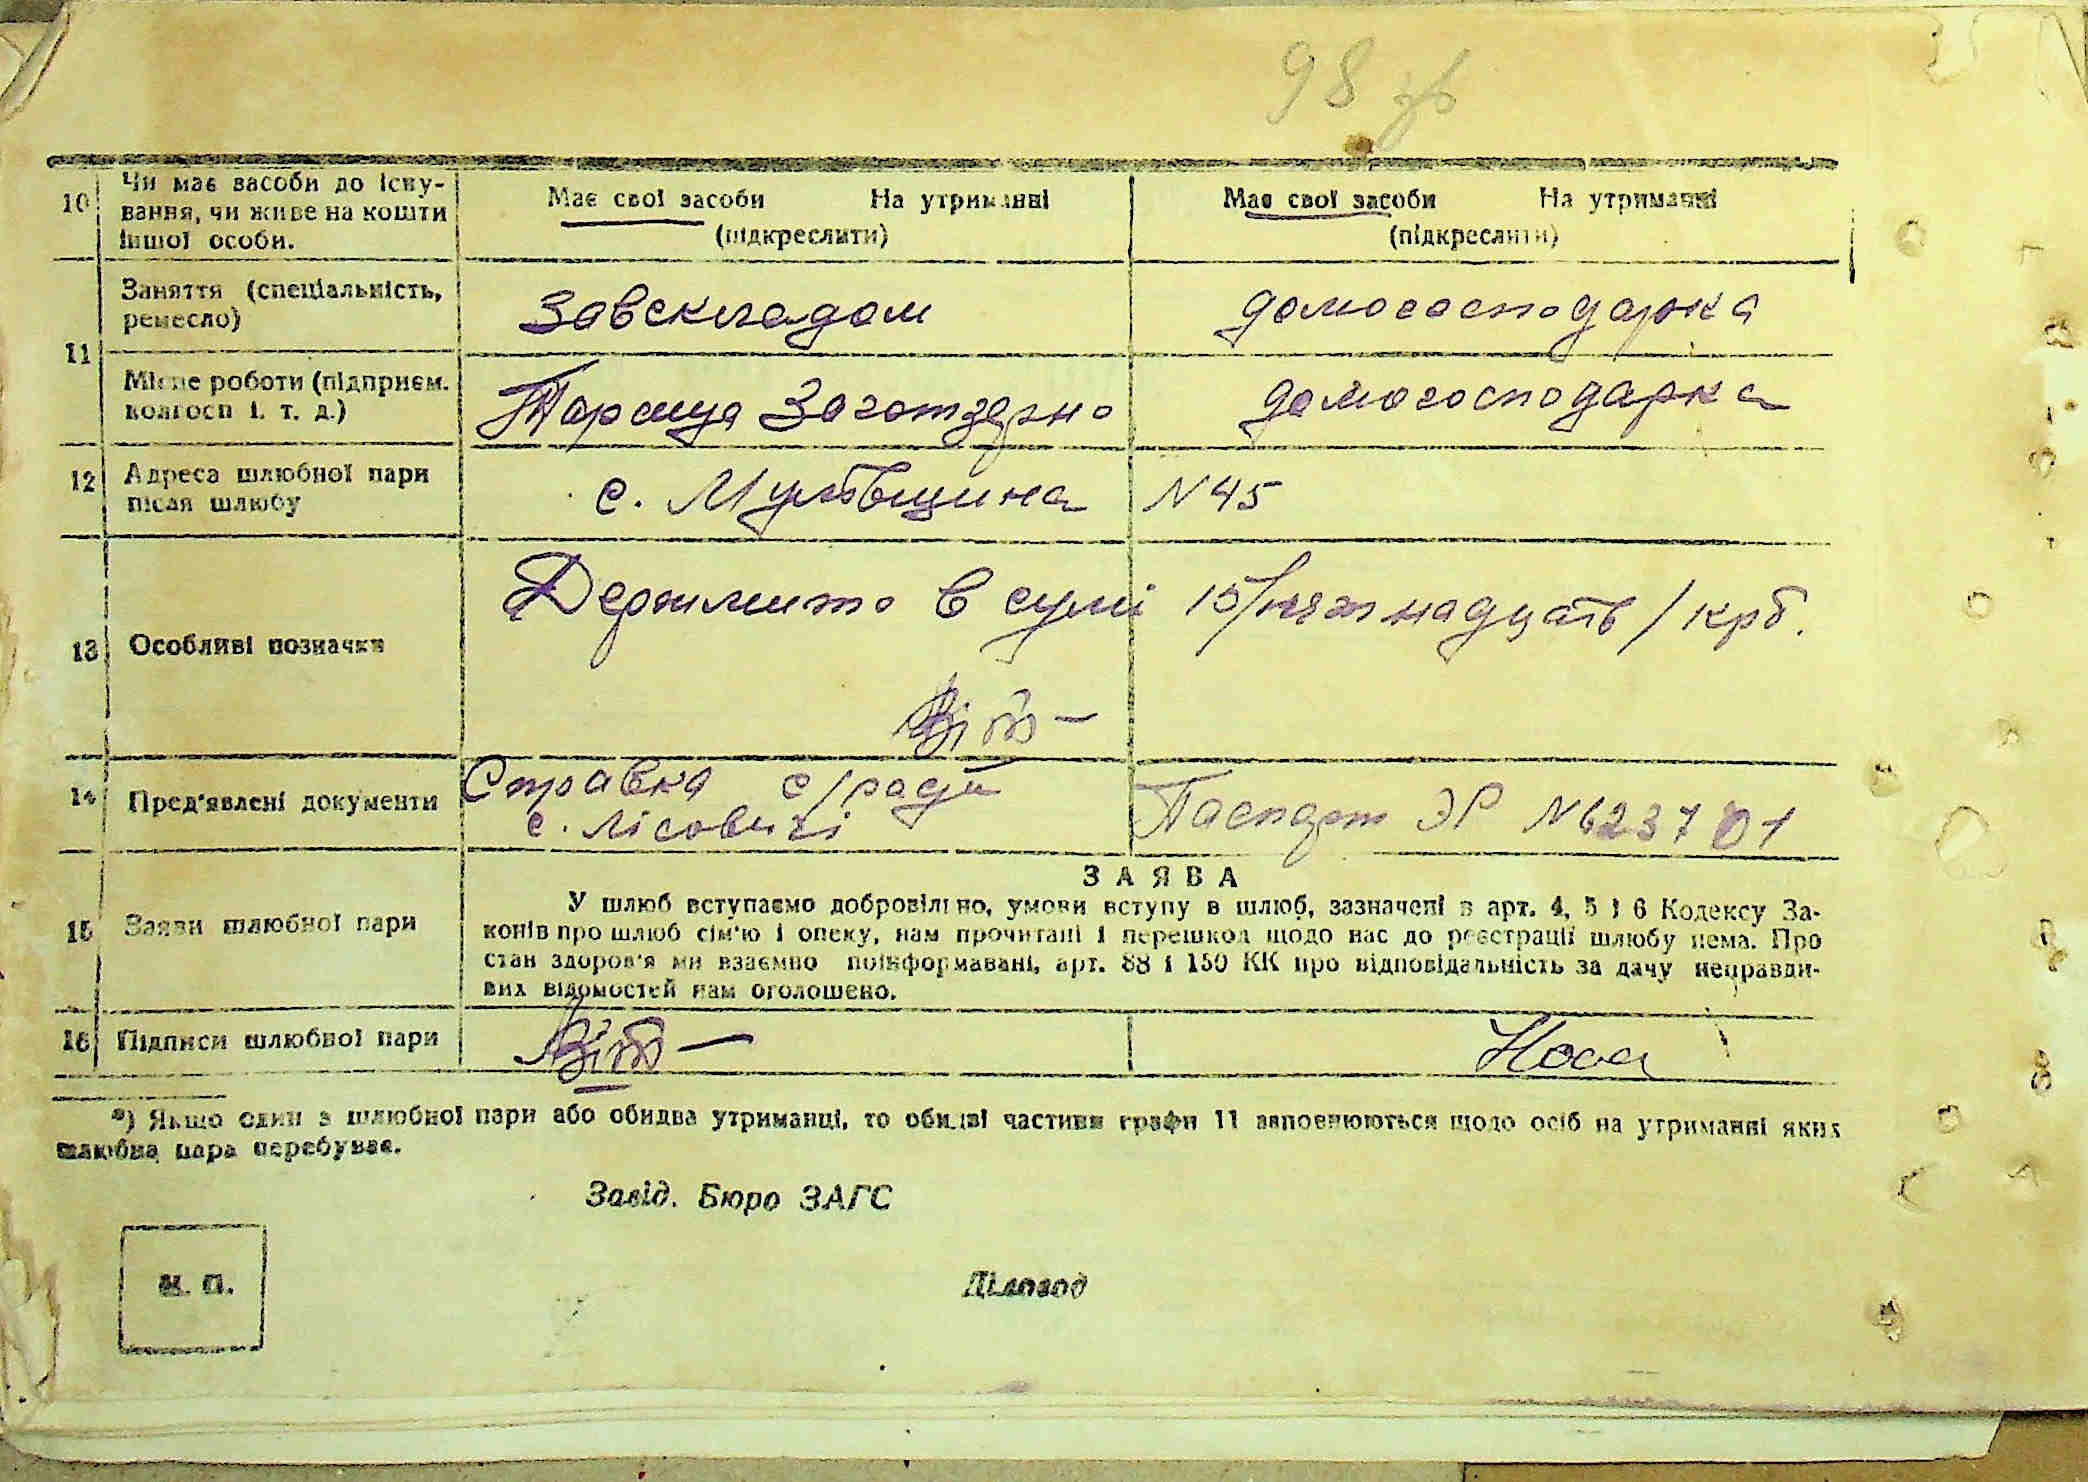 98 зв
10 Чи має засоби до існу-
вання, чи живе на кошти
іншої особи.
Має свої засоби На утриманні
(підкреслити)
Має свої засоби На утриманні
(підкреслити)
11 Заняття (спеціальність,
ремесло)
Завскладом
домогосподарка
Місце роботи (підприєм.
колгосп і. т. д.)
Тараща Заготзерно
домогосподарка
12 Адреса шлюбної пари
після шлюбу
с. N 45
13 Особливі позначки
Держмито в сумі 15/пятнадцать/ крб.
14 Пред'явлені документи
Справка с/ради
с. Лісовичі
Паспорт ЭР N 623701
15 Заяви шлюбної пари
ЗАЯВА
У шлюб вступаємо добровільно, умови вступу в шлюб, зазначені в арт. 4, 5 і 6 Кодексу За-
конів про шлюб сім'ю і опеку, нам прочитані і перешкод щодо нас до реєстрації шлюбу нема. Про
стан здоров'я ми взаємно поінформавані, арт. 88 і 150 КК про відповідальність за дачу неправди-
вих відомостей нам оголошено.
16 Підписи шлюбної пари
*) Якщо один з шлюбної пари або обидва утриманці, то обидві частини графи 11 заповнюються щодо осіб на утриманні яких
шлюбна пара перебуває.
Завід. Бюро ЗАГС
М. П.
Діловод